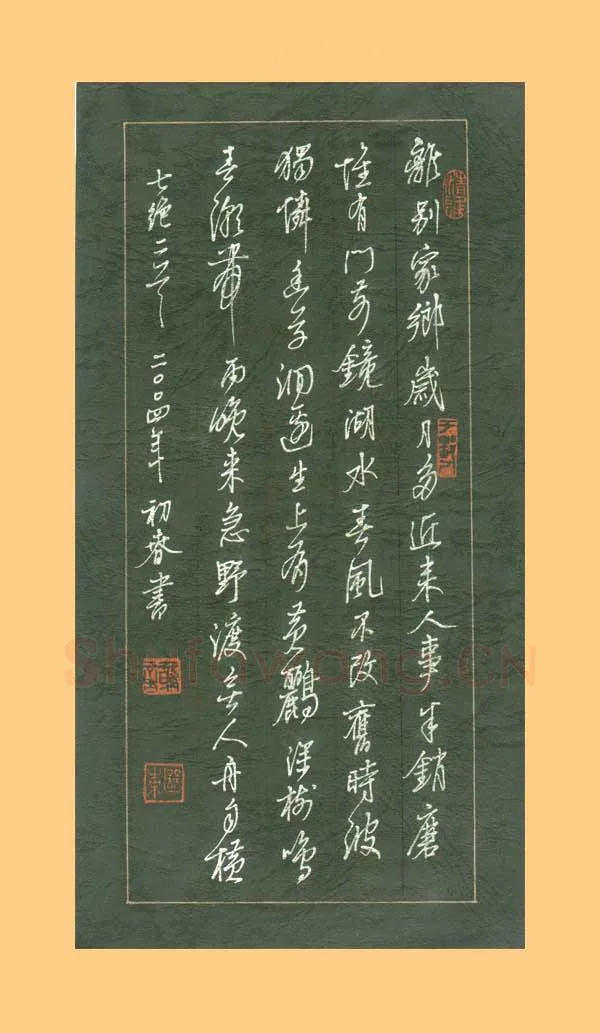 離别家鄉歲月多近来人事半銷磨
惟有门前鏡湖水春風不改舊時波
獨憐幽草涧邊生上有黄鸝深樹鳴
春潮帶雨晚来急野渡無人舟自横
七绝二首 二〇〇四年 初春書
Shufawang.CN